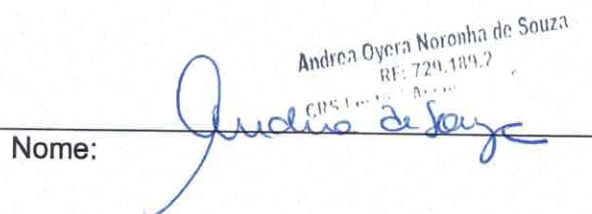 Andrea Oyera Noronha de Souza
RF: 729.189.2
Andréa de Souza
Nome: